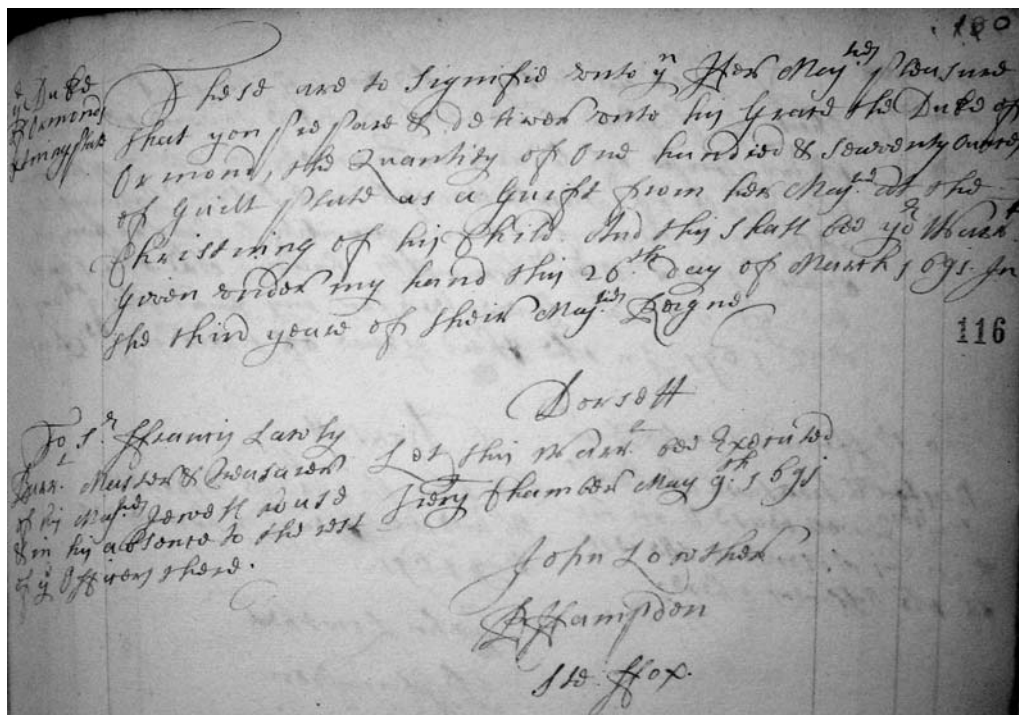 180
ye Duke
of Ormonds
Cristning plate
These are to Signifie unto yu Her Majties pleasure
that you prepare & deliver unto his Grace the Duke of
Ormond, the Quantity of One hundred & Seaventy Ounces
of Guilt plate as a Guift from her Majtie at the
Christning of his Child. And this shall bee yor Warrt.
Given under my hand this 26th day of March 1691. In
the third yeare of their Majties Reigne
116
Dorsett
To Sr. Ffrancis Lawly
Barrt. Master & Treasurer
of his Majties Jewell house
& in his absence to the rest
of ye Officers there.
Let this Warrt. bee Executed
Trery Chamber May 9th. 1691
John Lowther
R Hampden
Ste: Ffox.